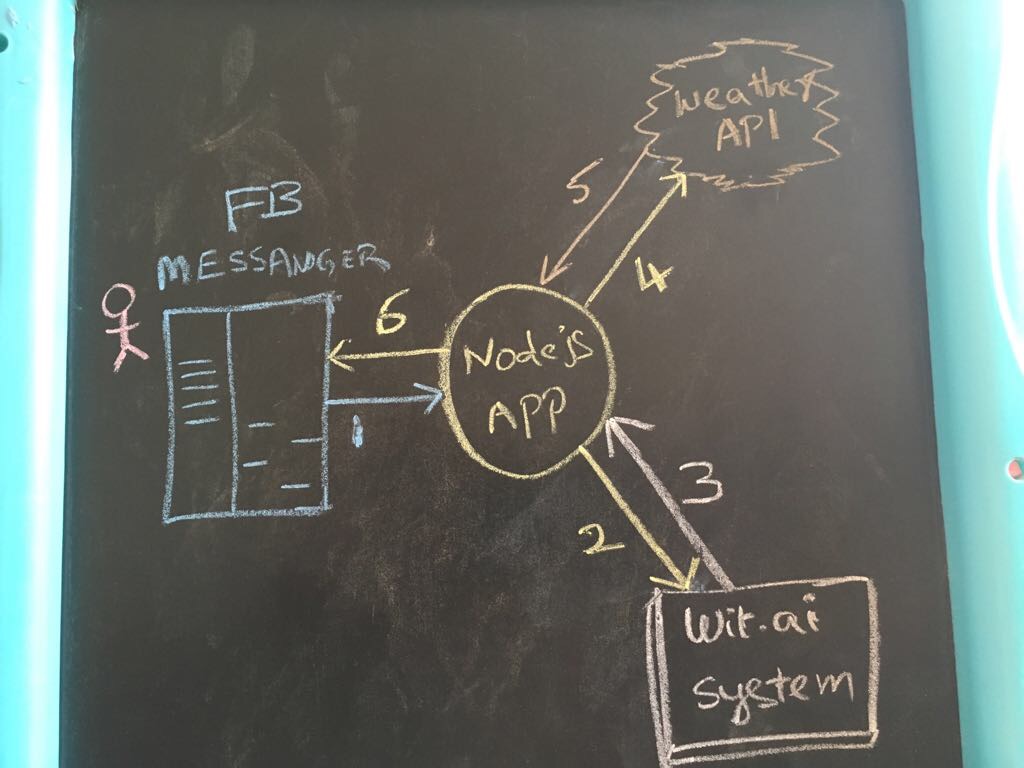 Weather
API
5
4
FB
MESSANGER
6
1
Node'js
APP
3
2
Wit.ai
system